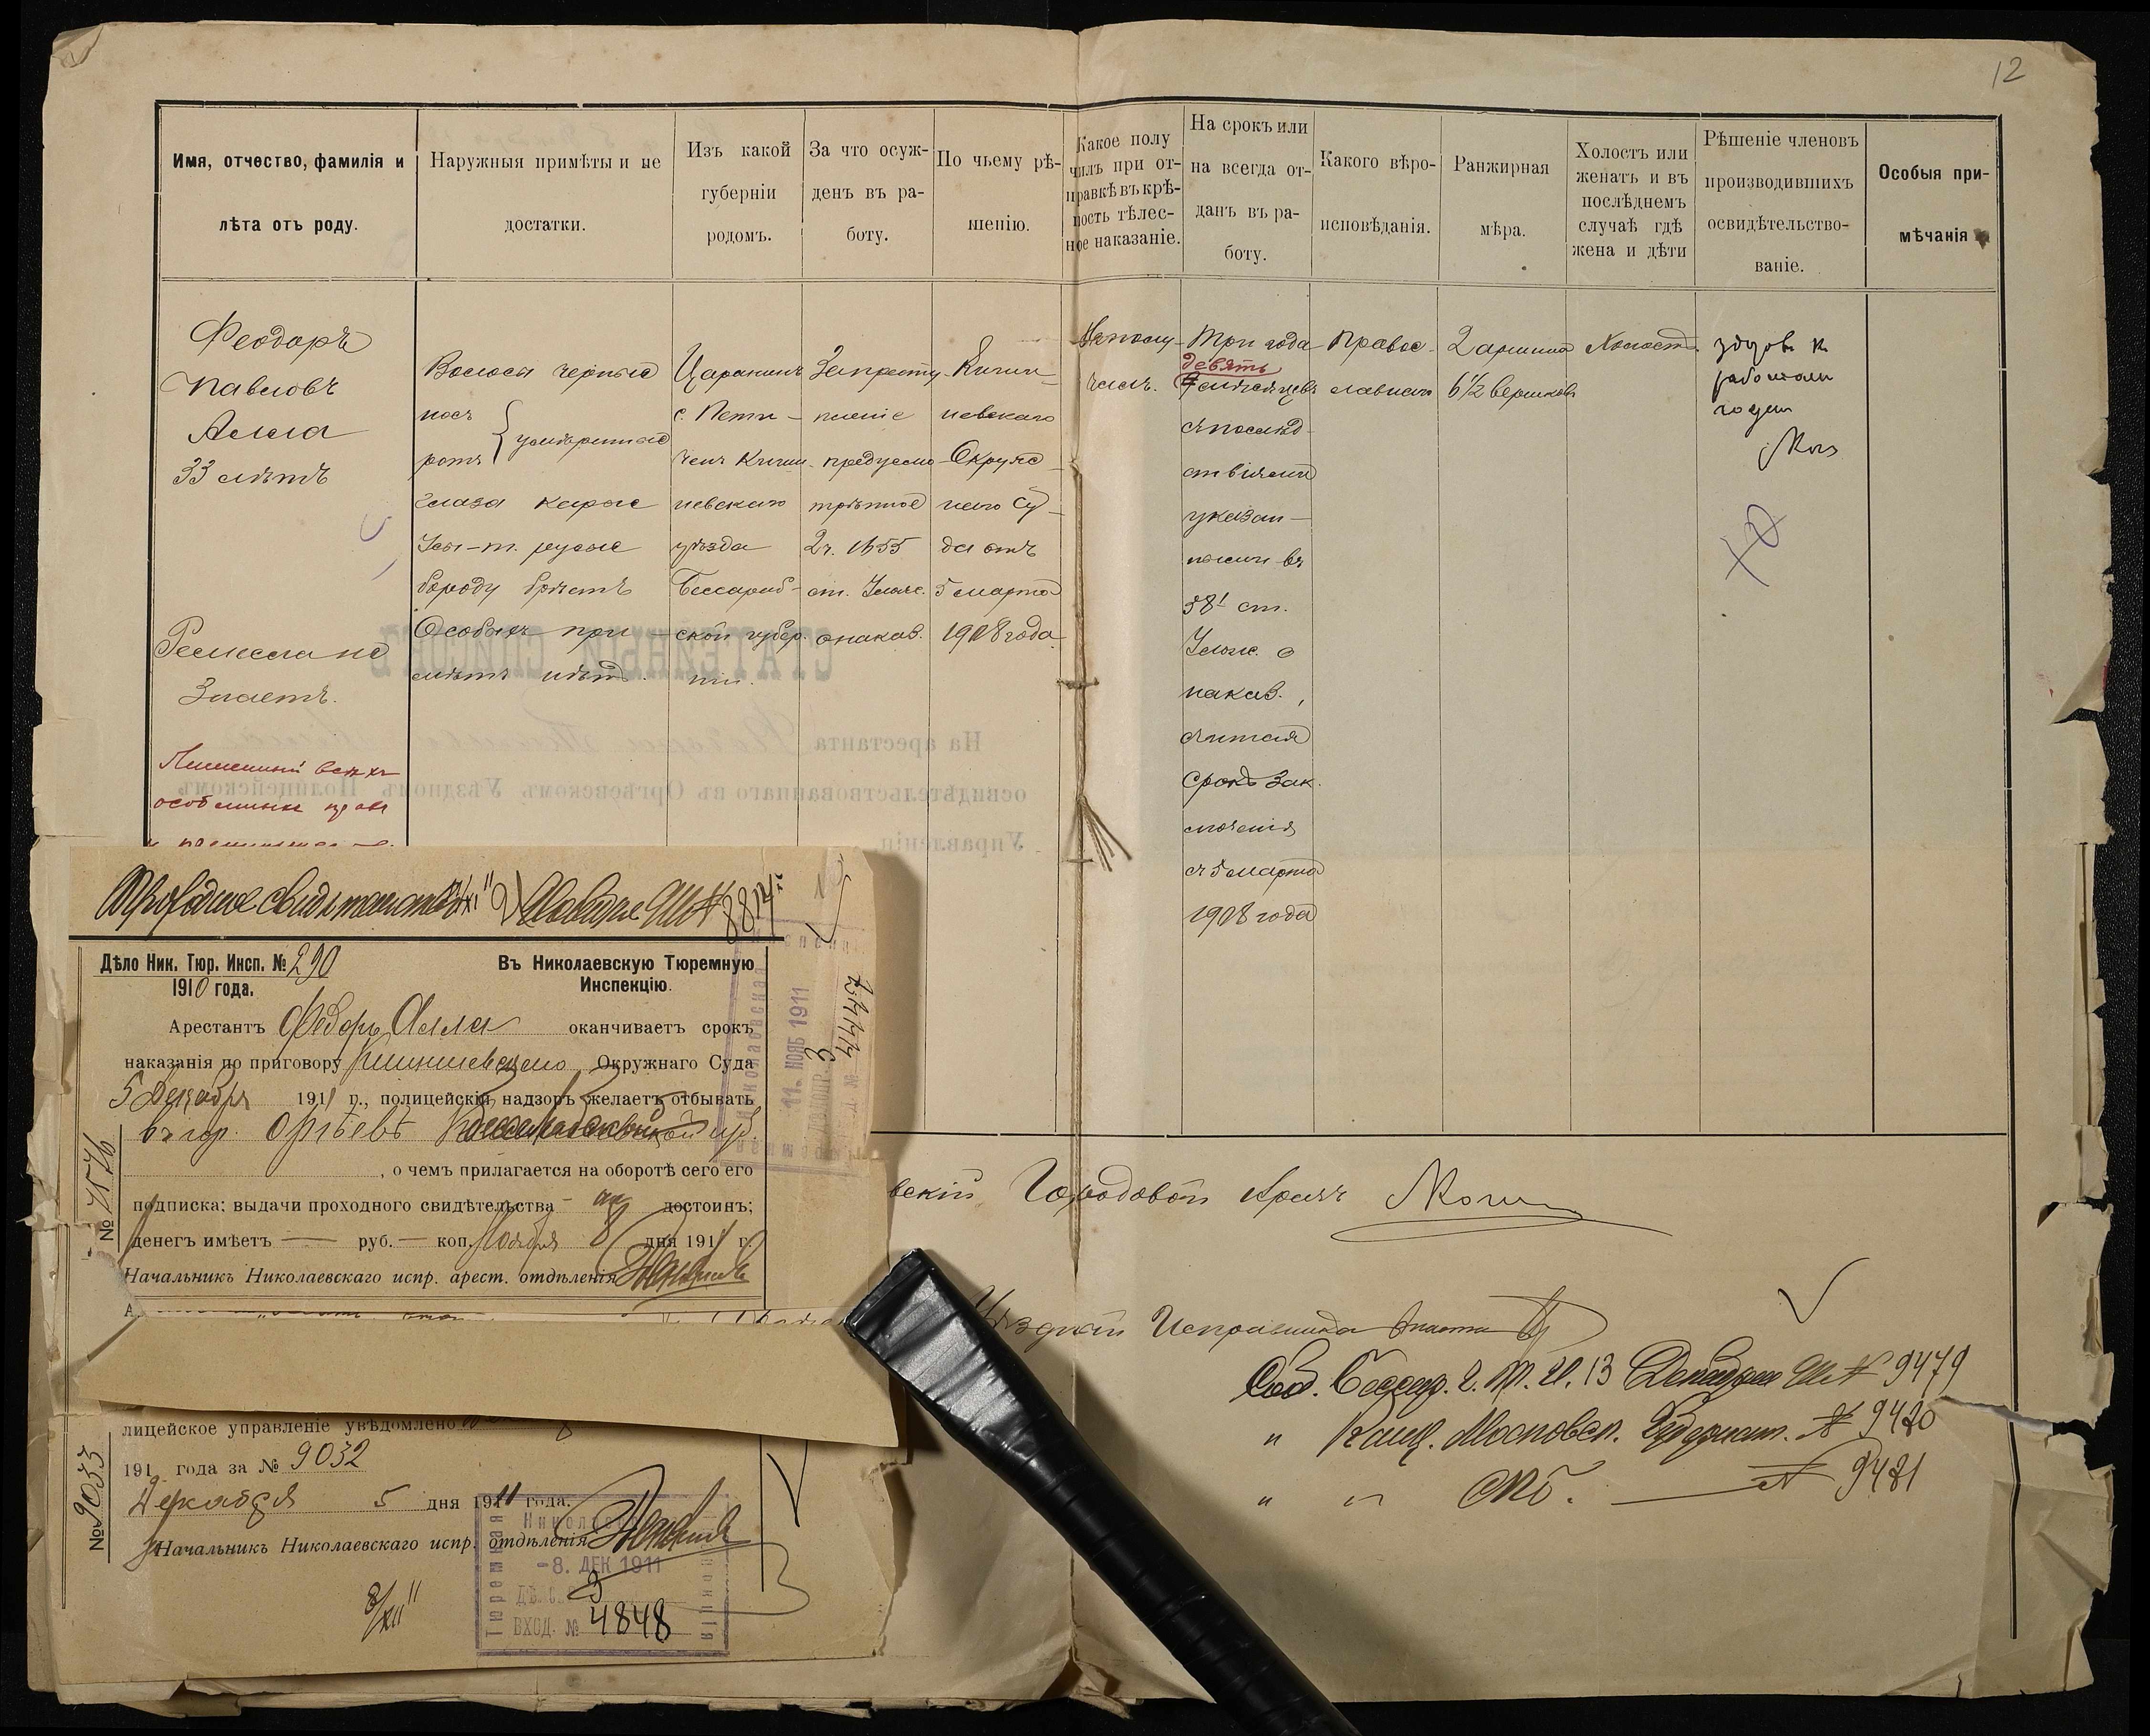 12
Имя, отчество, фамилія и
лѣта отъ роду.
Наружныя примѣты и не
достатки.
Изъ какой
губерніи
родомъ.
За что осуж-
денъ въ ра-
боту.
По чьему рѣ-
шенію.
Какое полу
чилъ при от-
правкѣ въ крѣ-
пость тѣлес-
ное наказаніе.
На срокъ или
на всегда от-
данъ въ ра-
боту.
Какого вѣро-
исповѣданія.
Ранжирная
мѣра.
Холостъ или
женатъ и въ
послѣднемъ
случаѣ гдѣ
жена и дѣти
Рѣшеніе членовъ
производившихъ
освидѣтельство-
ваніе.
Особыя при-
мѣчанія
Феодоръ
Павловъ
Алла
33 лѣтъ
Ремесла не
Знаетъ.
Лишенный всѣхъ
особенныхъ правъ
Волосы черные
носъ
ротъ
умѣренные
глаза каріе
Усы-т. русые
бороду брѣетъ
Особыхъ при-
мѣтъ нѣтъ.
Царанинъ
с. Пети-
ченъ Киши-
невскаго
уѣзда
Бессараб-
ской губер.
ніи.
За престу-
пленіе
предусмо-
трѣнное
2 ч. 1655
ст. Улож.
о наказ.
Киши-
невскаго
Окруж-
наго Су-
да отъ
5 марта
1908 года
Не полу-
чилъ.
Три года
девять
мѣсяцевъ
съ послѣд-
ствіями
указан-
ными въ
58¹ ст.
Улож. о
наказ.,
считая
срокъ зак.
лючения
съ 5 марта
1908 года
Правос-
лавный
2 аршина
6 1/2 вершковъ
Холостъ.
здоровъ къ
работамъ
годенъ
СТАТЕЙНЫЙ СПИСОКЪ
На арестанта
освидѣтельствованнаго въ Оргѣевскомъ, Уѣздномъ Полицейскомъ
Управленіи.
Дѣло Ник. Тюр. Инсп. № 290
1910 года.
Въ Николаевскую Тюремную
Инспекцію.
Арестантъ Федоръ Алла оканчиваетъ срокъ
наказанія по приговору Кишиневскаго Окружнаго Суда
5 Декабря 1911 г., полицейскій надзоръ желаетъ отбывать
въ гор. Оргѣевѣ Бессарабской губ.
, о чемъ прилагается на оборотѣ сего его
подписка; выдачи проходного свидѣтельства - достоинъ;
денегъ имѣетъ — руб. — коп. Ноября 8 дня 1911 г.
Начальникъ Николаевскаго испр. арест. отдѣленія
№ 7576
11. НОЯБ 1911
вскій Городовой Врачъ
Уѣздный Исправника
Соб. Бессар. г. Т. И. 13 Декабря 911 № 9479
" Канц. Московск. Губернат. № 9480
" " СПб. — № 9481
лицейское управленіе увѣдомлено
191 года за № 9032
Декабря 5 дня 1911 года.
Начальникъ Николаевскаго испр. отдѣленія
№ 9033
-8. ДЕК 1911
ВХОД. № 4848
8/XII 11